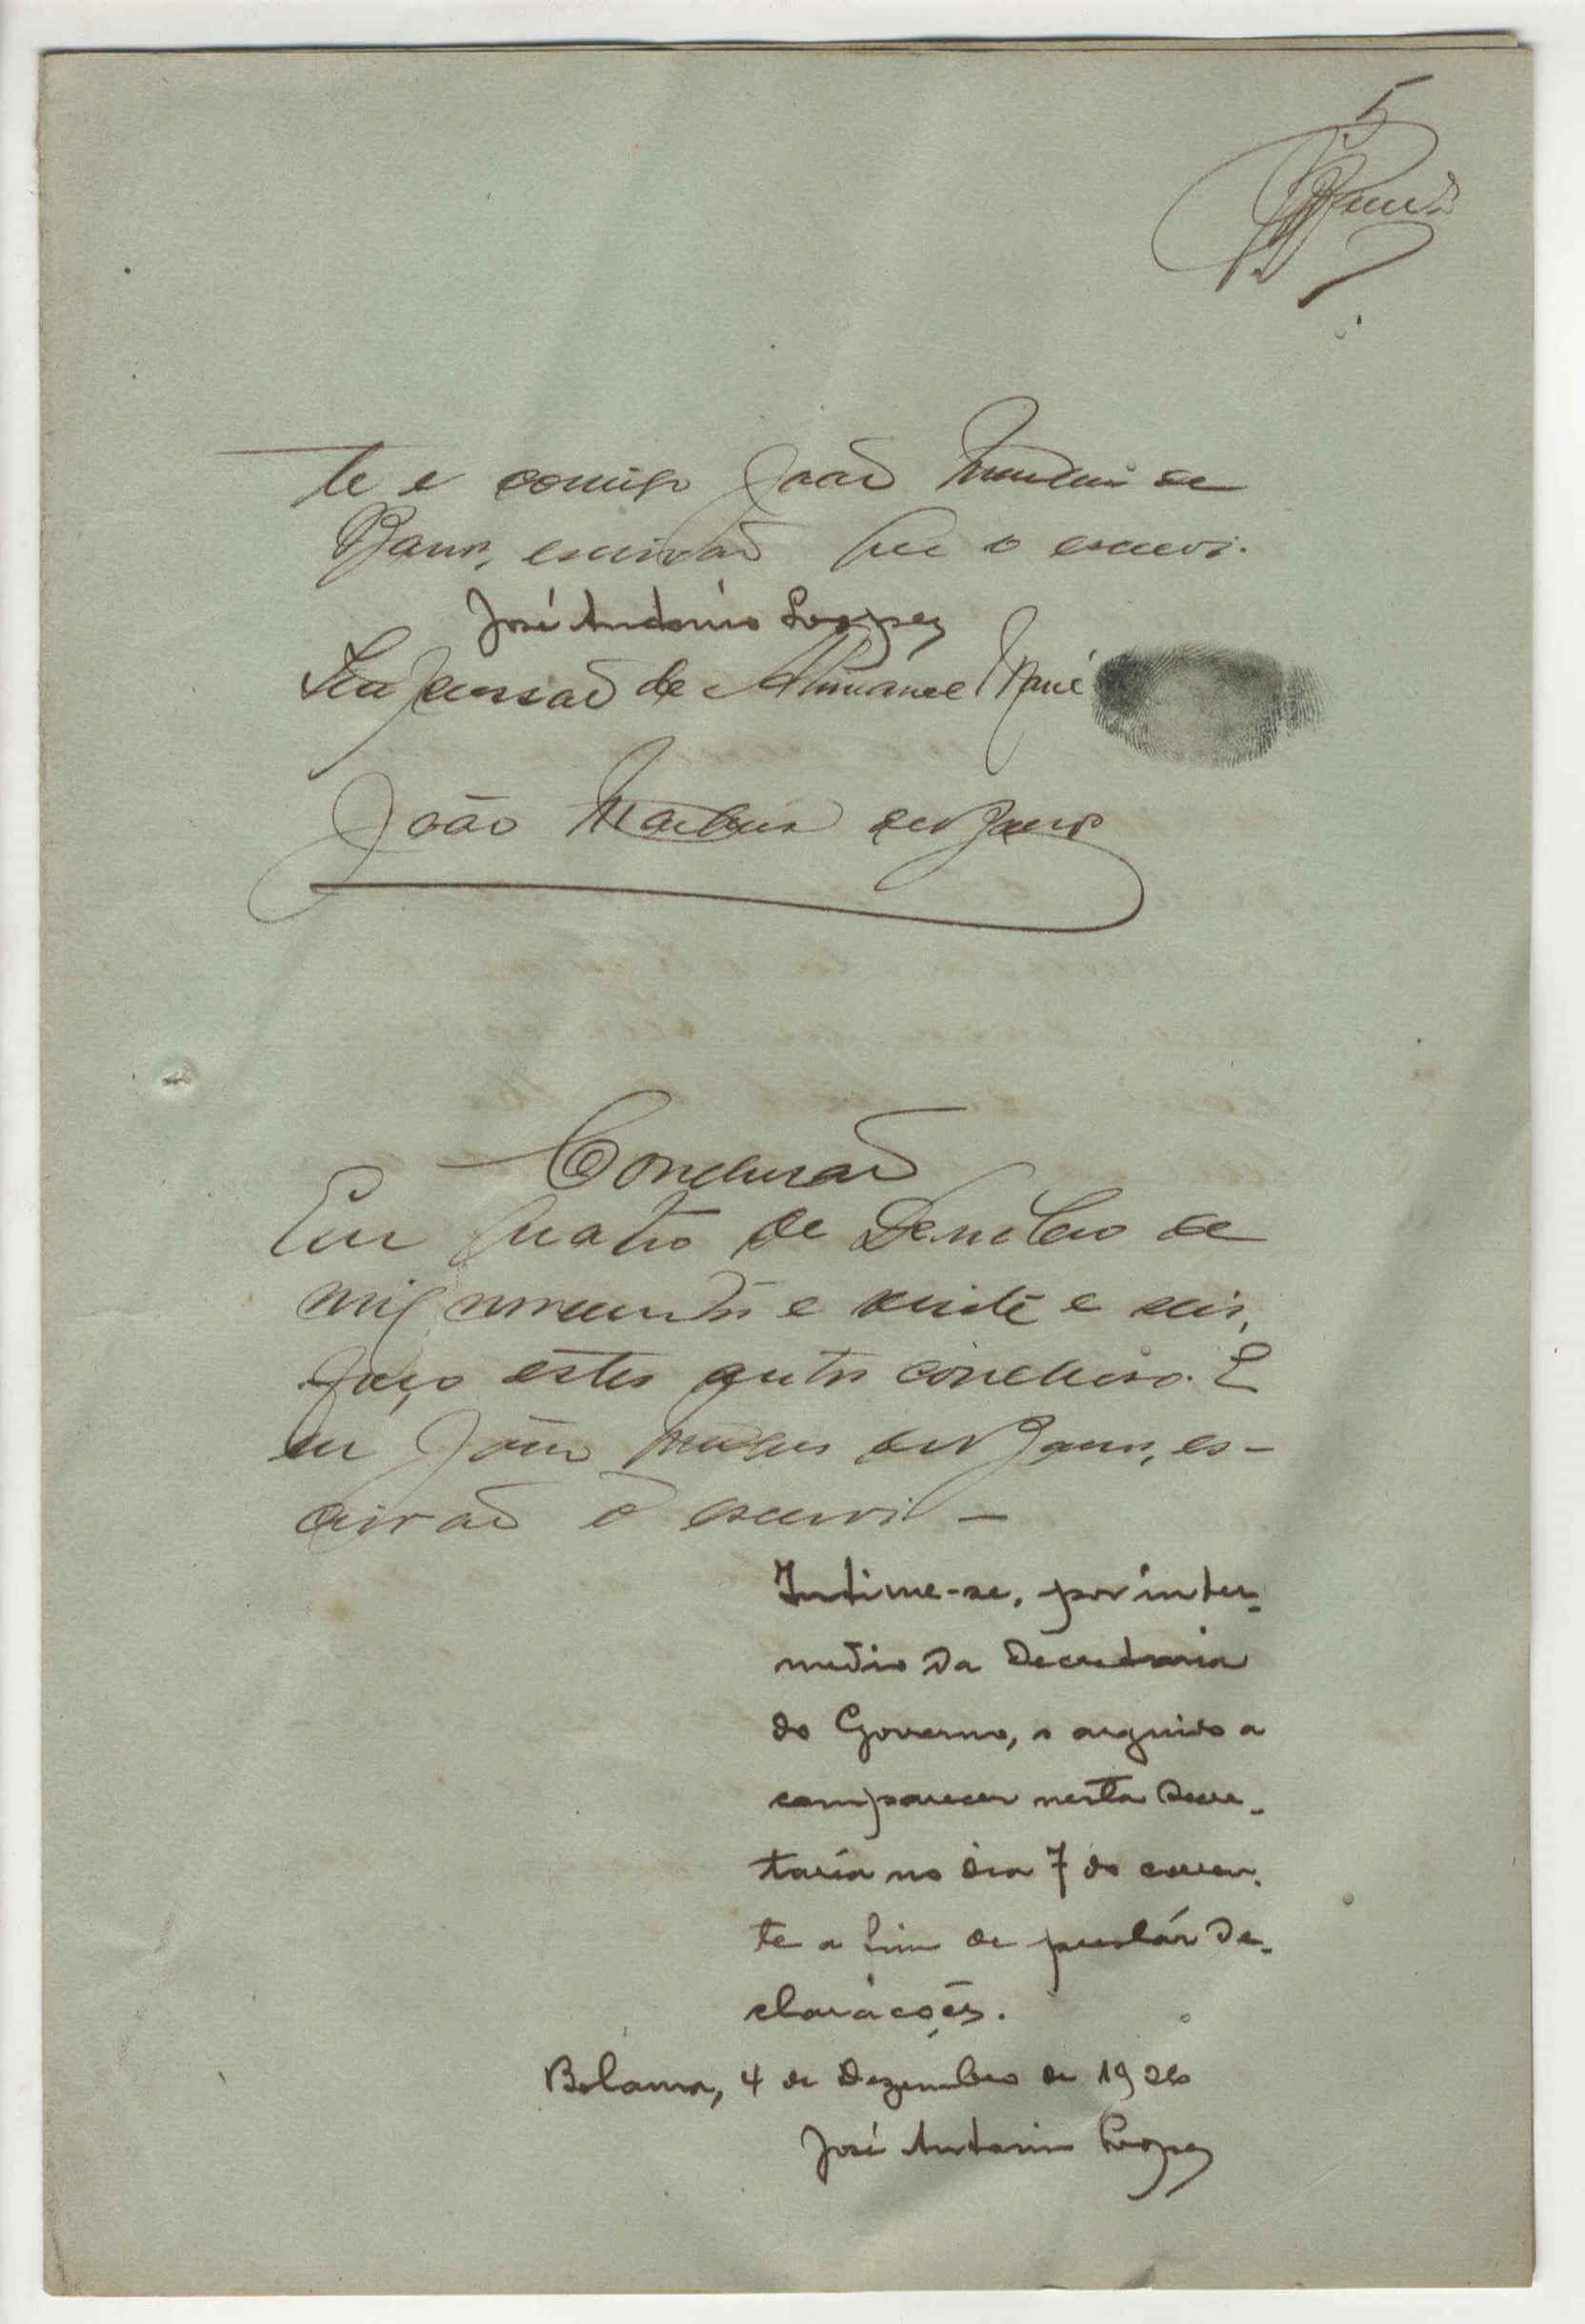 5
te e comigo João Martins de
Barros, escrivão que o escrevi.
José António Lopes
Impressão de Mané
João Martins de Barros
Conclusão
Em quatro de Dezembro de
mil novecentos e vinte e seis,
faço estes autos concluso. E
eu João Martins de Barros, es-
crivão o escrevi —
Intime-se, por inter-
medio da Secretaria
do Governo, o arguido a
comparecer nesta Secre-
taría no dia 7 do corren-
te a fim de prestár de-
clarações.
Bolama, 4 de Dezembro de 1926
José Antonio Lopes